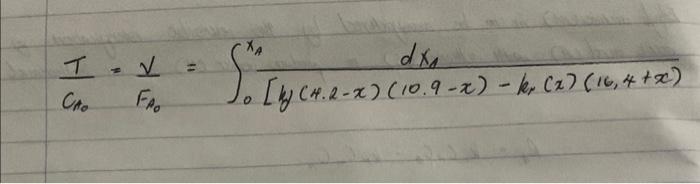 T/C_A0 = V/F_A0 = ∫_0^x_A dx_A / [kf (4.2-x) (10.9-x) - kr (x) (16,4+x)